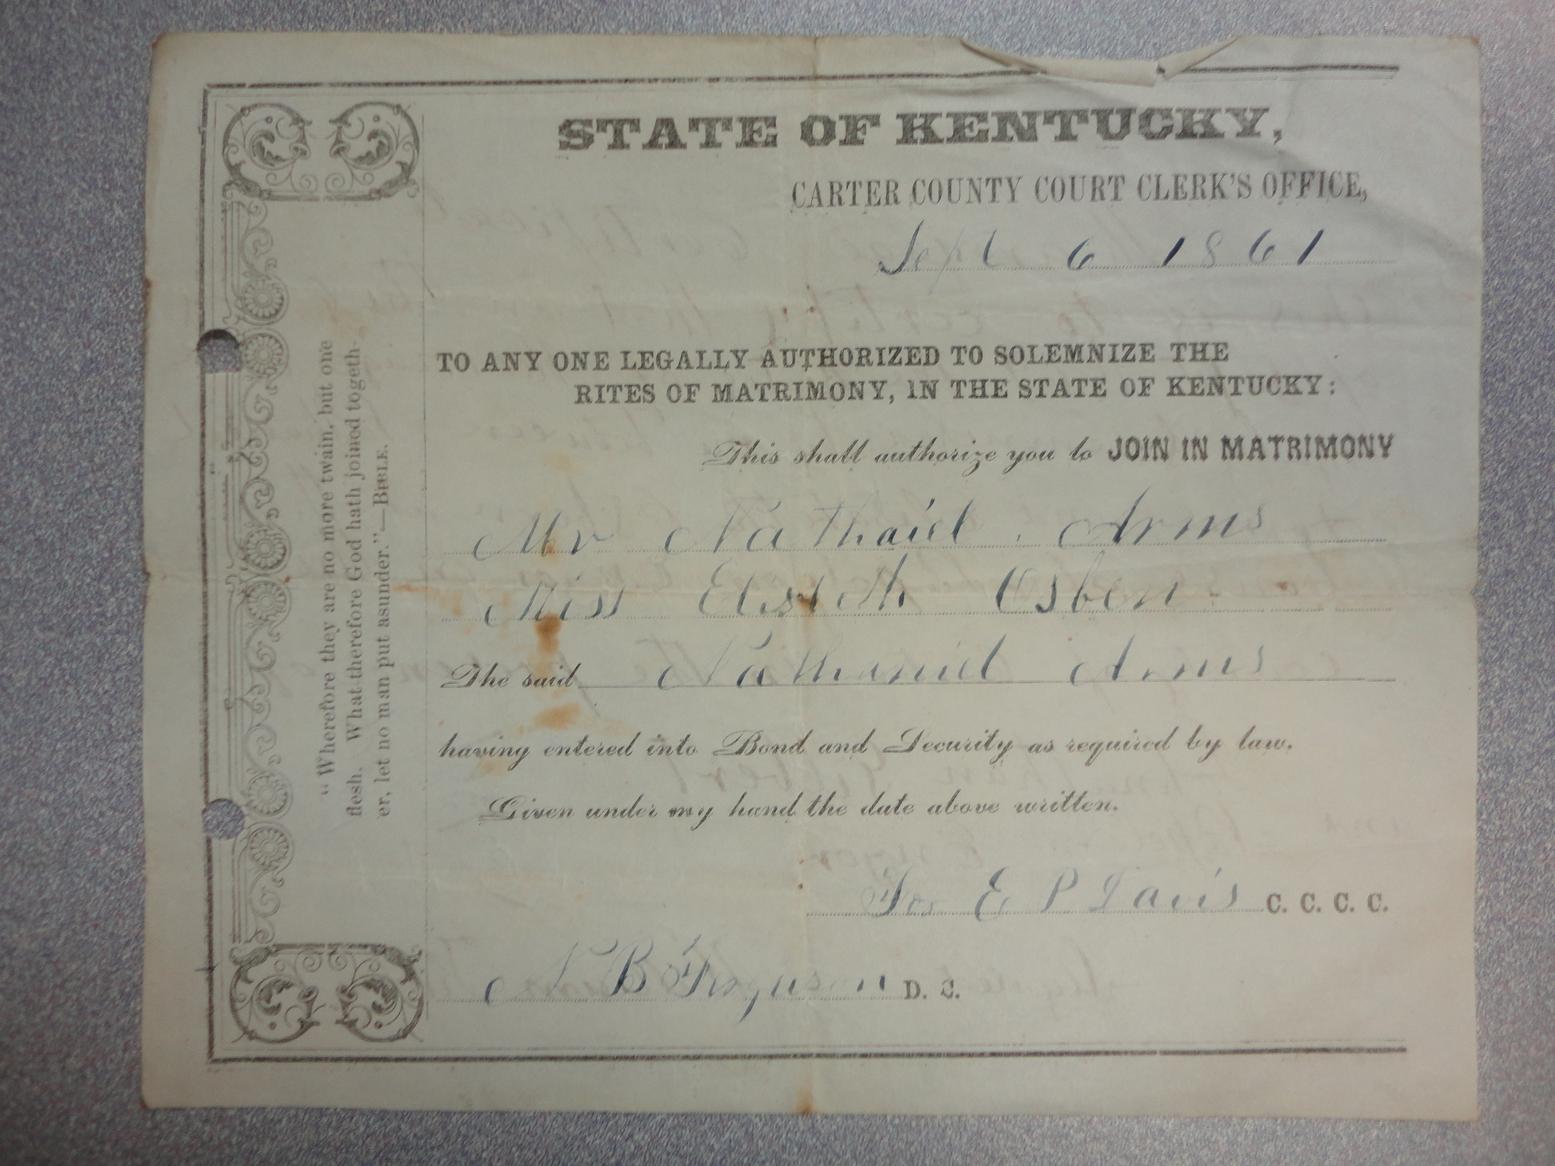 STATE OF KENTUCKY,
CARTER COUNTY COURT CLERK'S OFFICE,
Sept 6 1861
TO ANY ONE LEGALLY AUTHORIZED TO SOLEMNIZE THE
RITES OF MATRIMONY, IN THE STATE OF KENTUCKY:
This shall authorize you to JOIN IN MATRIMONY
Mr Nathaiel Arms
Miss Osben
The said Nathaniel Arms
having entered into Bond and Security as required by law.
Given under my hand the date above written.
For E P Davis C. C. C. C.
N B Ferguson D. C.
"Wherefore they are no more twain, but one
flesh. What therefore God hath joined togeth-
er, let no man put asunder."—BIBLE.